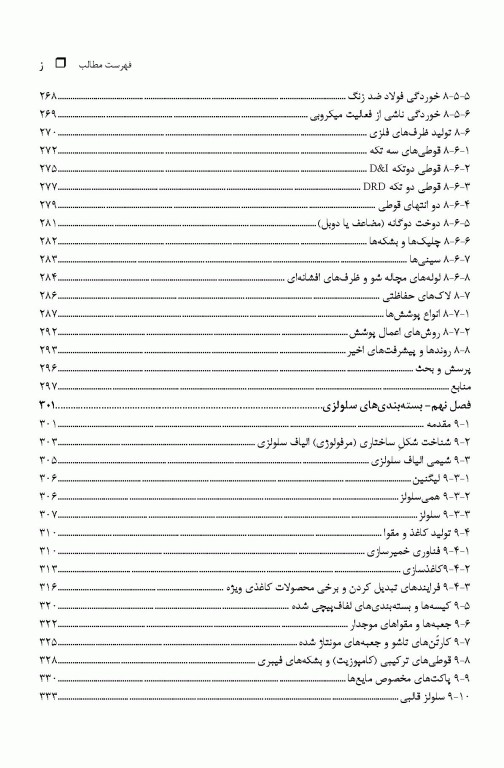 فهرست مطالب ❒ ز
۸-۵-۵ خوردگی فولاد ضد زنگ ۲۶۸
۸-۵-۶ خوردگی ناشی از فعالیت میکروبی ۲۶۹
۸-۶ تولید ظرف‌های فلزی ۲۷۰
۸-۶-۱ قوطی‌های سه تکه ۲۷۲
۸-۶-۲ قوطی دوتکه D&I ۲۷۵
۸-۶-۳ قوطی دو تکه DRD ۲۷۷
۸-۶-۴ دو انتهای قوطی ۲۷۹
۸-۶-۵ دوخت دوگانه (مضاعف یا دوبل) ۲۸۱
۸-۶-۶ چلیک‌ها و بشکه‌ها ۲۸۲
۸-۶-۷ سینی‌ها ۲۸۳
۸-۶-۸ لوله‌های مچاله شو و ظرف‌های افشانه‌ای ۲۸۴
۸-۷ لاک‌های حفاظتی ۲۸۶
۸-۷-۱ انواع پوشش‌ها ۲۸۷
۸-۷-۲ روش‌های اعمال پوشش ۲۹۲
۸-۸ روندها و پیشرفت‌های اخیر ۲۹۳
پرسش و بحث ۲۹۶
منابع ۲۹۷
فصل نهم- بسته‌بندی‌های سلولزی ۳۰۱
۹-۱ مقدمه ۳۰۱
۹-۲ شناخت شکل ساختاری (مرفولوژی) الیاف سلولزی ۳۰۳
۹-۳ شیمی الیاف سلولزی ۳۰۵
۹-۳-۱ لیگنین ۳۰۶
۹-۳-۲ همی‌سلولز ۳۰۶
۹-۳-۳ سلولز ۳۰۷
۹-۴ تولید کاغذ و مقوا ۳۱۰
۹-۴-۱ فناوری خمیرسازی ۳۱۰
۹-۴-۲کاغذسازی ۳۱۳
۹-۴-۳ فرایندهای تبدیل کردن و برخی محصولات کاغذی ویژه ۳۱۶
۹-۵ کیسه‌ها و بسته‌بندی‌های لفاف‌پیچی شده ۳۲۰
۹-۶ جعبه‌ها و مقواهای موجدار ۳۲۲
۹-۷ کارتُن‌های تاشو و جعبه‌های مونتاژ شده ۳۲۵
۹-۸ قوطی‌های ترکیبی (کامپوزیت) و بشکه‌های فیبری ۳۲۸
۹-۹ پاکت‌های مخصوص مایع‌ها ۳۳۰
۹-۱۰ سلولز قالبی ۳۳۳